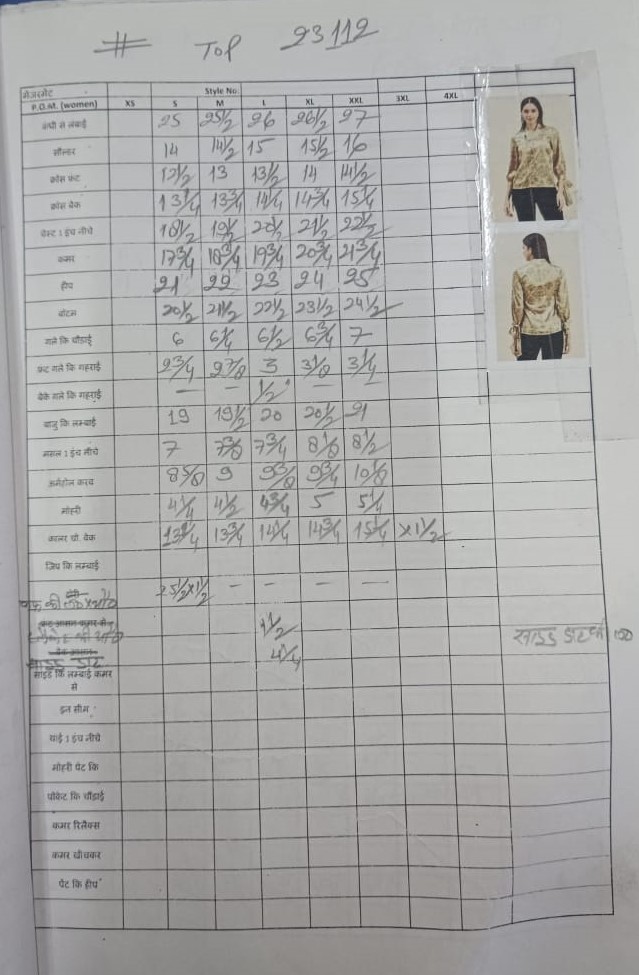 # TOP 23112
मेजरमेंट Style No.
P.O.M. (women) XS S M L XL XXL 3XL 4XL
कंधे से लंबाई 25 25 1/2 26 26 1/2 27
सोल्डर 14 14 1/2 15 15 1/2 16
क्रॉस फ्रंट 12 1/2 13 13 1/2 14 14 1/2
क्रॉस बैक 13 1/4 13 3/4 14 1/4 14 3/4 15 1/4
चेस्ट 1 इंच नीचे 18 1/2 19 1/2 20 1/2 21 1/2 22 1/2
कमर 17 3/4 18 3/4 19 3/4 20 3/4 21 3/4
हीप 21 22 23 24 25
बॉटम 20 1/2 21 1/2 22 1/2 23 1/2 24 1/2
गले कि चौड़ाई 6 6 1/4 6 1/2 6 3/4 7
फ्रंट गले कि गहराई 2 3/4 2 7/8 3 3 1/8 3 1/4
बैक गले कि गहराई — — 1/2" — —
बाजु कि लम्बाई 19 19 1/2 20 20 1/2 21
मसल 1 इंच नीचे 7 7 3/8 7 3/4 8 1/8 8 1/2
आर्महोल करव 8 5/8 9 9 3/8 9 3/4 10 1/8
मोहरी 4 1/4 4 1/2 4 3/4 5 5 1/4
कालर चौ. बैक 13 1/4 13 3/4 14 1/4 14 3/4 15 1/4 x 1 1/2
जिप कि लम्बाई
25 1/2 x 1 1/2 — — — —
1 1/2
साइड डाट 4 1/4
साईड कि लम्बाई कमर से
इन सीम
थाई 1 इंच नीचे
मोहरी पेंट कि
पॉकेट कि चौड़ाई
कमर रिलैक्स
कमर खीचकर
पेंट कि हीप